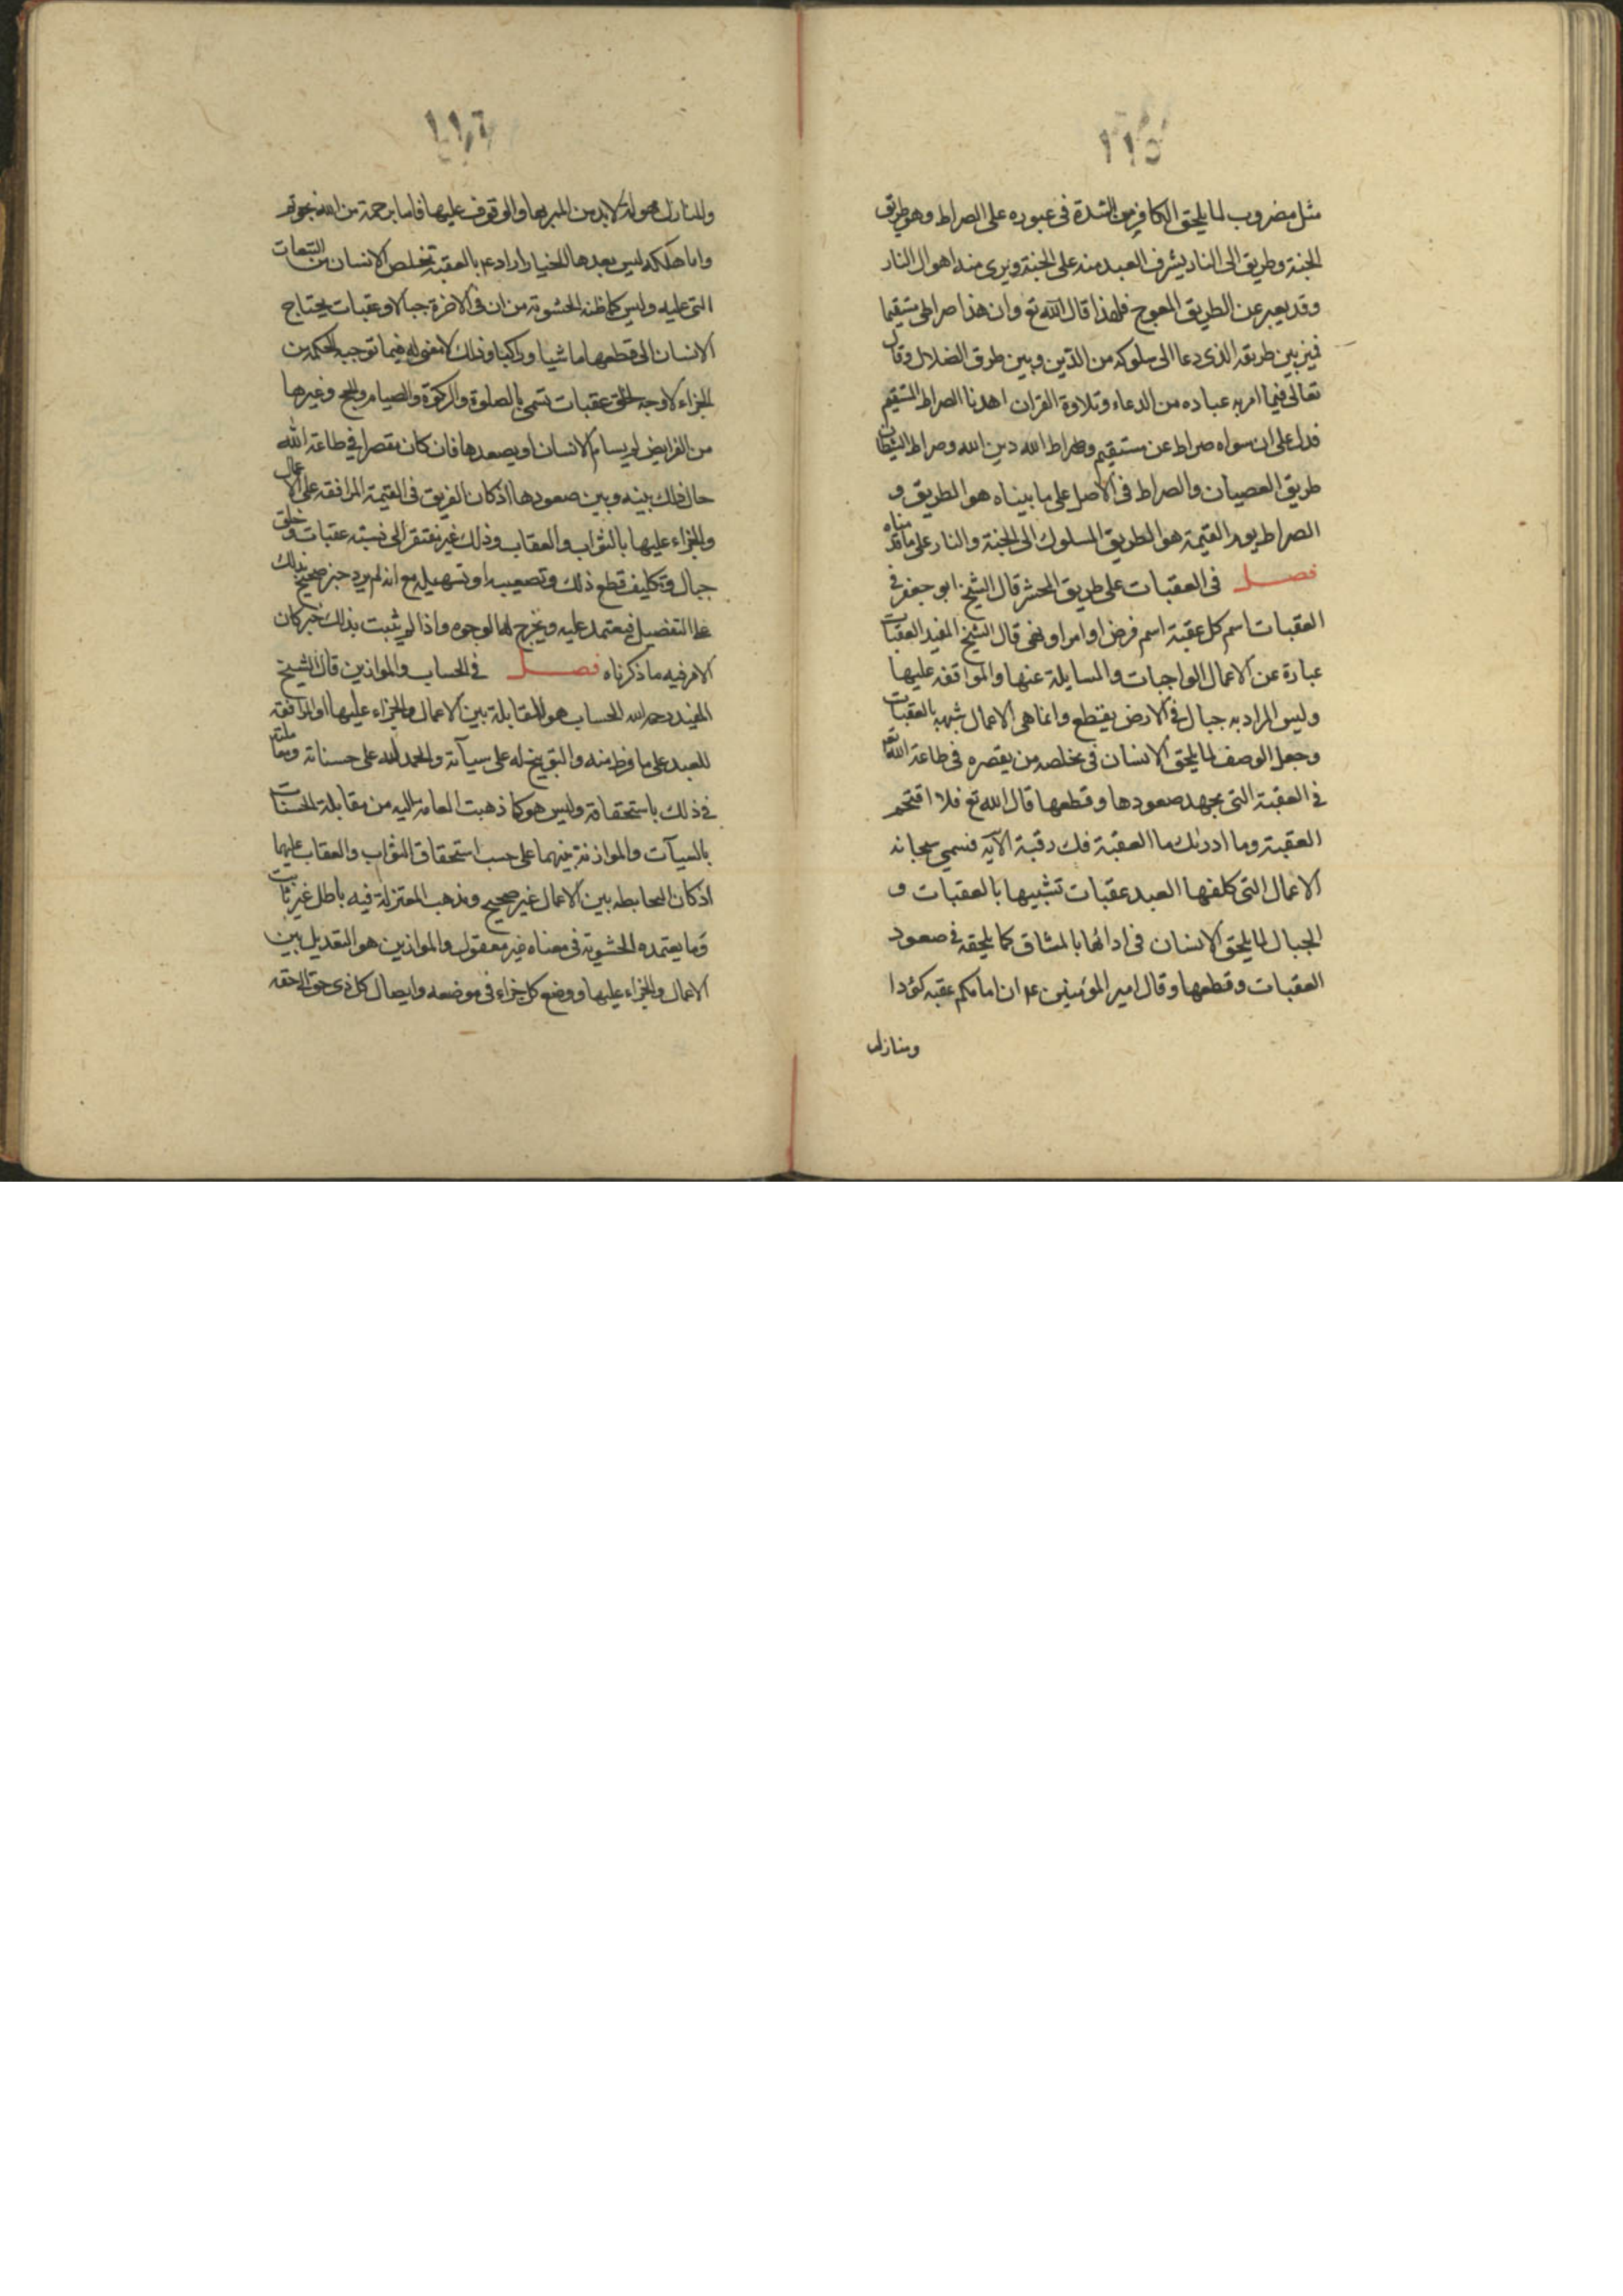 ١١٥
مثل مضروب لما يلحق الكافر من الشدة فى عبوره على الصراط وهو طريق
الجنة وطريق الى النار يشرف العبد منه على الجنة ويرى منه اهوال النار
وقد يعبر عن الطريق المعوج فلهذا قال الله تع وان هذا صراطى مستقيما
فميز بين طريقه الذى دعا الى سلوكه من الدين وبين طرق الضلال وقال
تعالى فيما امر به عباده من الدعاء وتلاوة القران اهدنا الصراط المستقيم
فدل على ان سواه صراط عن مستقيم وصراط الله دين الله وصراط الشيطان
طريق العصيان والصراط فى الاصل على ما بيناه هو الطريق و
الصراط يوم القيمة هو الطريق المسلوك الى الجنة والنار على ما قدمناه
فصل فى العقبات على طريق المحشر قال الشيخ ابو جعفر فى
العقبات اسم كل عقبة اسم فرض او امر او نهى قال الشيخ المفيد العقبات
عبارة عن الاعمال الواجبات والمسايلة عنها والمواقفه عليها
وليس المراد به جبال فى الارض يقتطع وانما هى الاعمال شبهه بالعقبات
وجعل الوصف لما يلحق الانسان فى تخلصه من يقصره فى طاعة الله تع
فى العقبة التى يجهد صعودها وقطعها قال الله تع فلا اقتحم
العقبة وما ادريك ما العقبة فك رقبة الآيه فسمى سبحانه
الاعمال التى كلفها العبد عقبات تشبيها بالعقبات و
الجبال لما يلحق الانسان فى ادائها بالمشاق كما يلحقه فى صعود
العقبات وقطعها وقال امير المؤمنين ع ان امامكم عقبه كؤدا
ومنازل
١١٦
والمنازل مهولة لابد من الممر بها والوقوف عليها فاما برحمة من الله نجوتم
واما هلكة ليس بعدها انجبار اراد ع بالعقبة تخلص الانسان من التبعات
التى عليه وليس كما ظنه الحشوية من ان فى الاخرة جبالا وعقبات يحتاج
الانسان الى قطعها ماشيا وراكبا وذلك لا معنى له فيما توجبه الحكمة من
الجزاء لا وجه لخلق عقبات تسمى بالصلوة والزكوة والصيام والحج وغيرها
من الفرايض لم يسام الانسان او يصعدها فان كان مقصرا فى طاعة الله
حال ذلك بينه وبين صعودها اذ كان الفريق فى القيمة المرافقه على الاعمال
والجزاء عليها بالثواب والعقاب وذلك غير مفتقر الى نسبته عقبات وخلق
جبال وتكليف قطع ذلك وتصعيبه او تسهيله مع انه لم يرد خبر صحيح بذلك
على التفضيل فيعتمد عليه ويخرج لها الوجوه واذا لم يثبت بذلك خبر كان
الامر فيه ما ذكرناه فصل فى الحساب والموازين قال الشيخ
المفيد رحمه الله الحساب هو المقابلة بين الاعمال والجزاء عليها او المرافقه
للعبد على ما فرط منه والتوبيخ له على سيآته والحمد لله على حسناته ومعاملته
فى ذلك باستحقاقه وليس هو كما ذهبت العامة اليه من مقابلة الحسنات
بالسيآت والموازنة بينهما على حسب استحقاق الثواب والعقاب عليهما
اذ كان التحابطه بين الاعمال غير صحيح ومذهب المعتزلة فيه باطل غير ثابت
وما يعتمده الحشوية فى معناه غير معقول والموازين هو التعديل بين
الاعمال والجزاء عليها ووضع كل جزاء فى موضعه وايصال كل ذى حق الى حقه